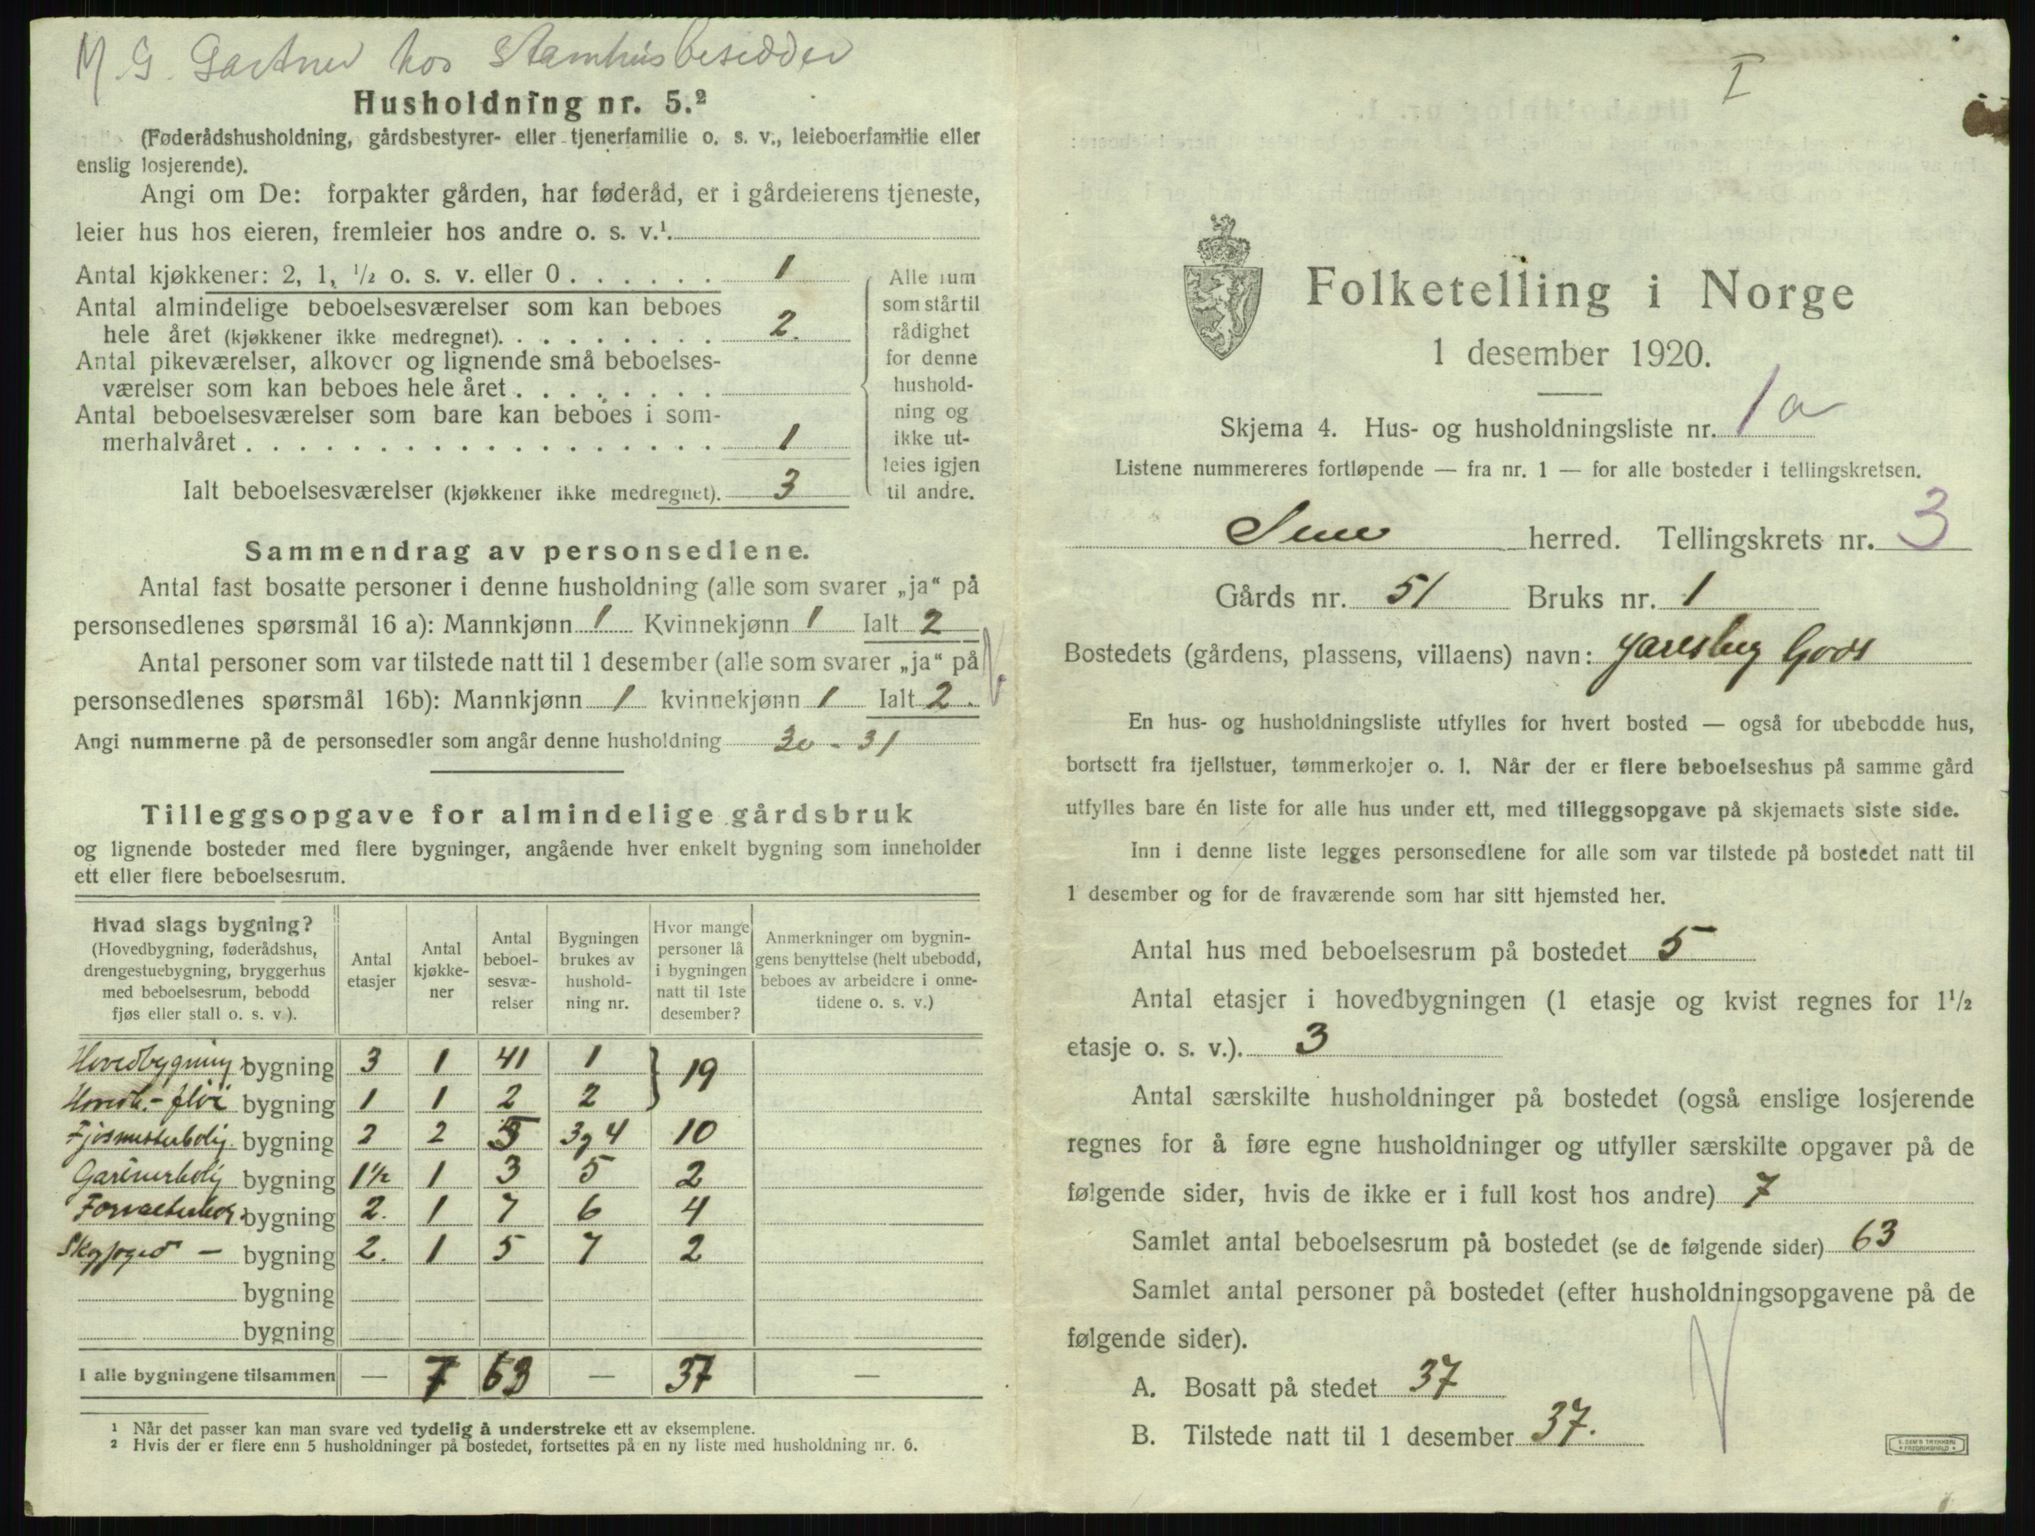 M. G. Gartner hos Stamhusbesidder
Husholdning nr. 5.²
(Føderådshusholdning, gårdsbestyrer- eller tjenerfamilie o. s. v., leieboerfamilie eller
enslig losjerende).
Angi om De: forpakter gården, har føderåd, er i gårdeierens tjeneste,
leier hus hos eieren, fremleier hos andre o. s. v.¹.
Antal kjøkkener: 2, 1, ½ o. s. v. eller 0 . . . . . . 1
Antal almindelige beboelsesværelser som kan beboes
hele året (kjøkkener ikke medregnet). . . . . . . . . 2.
Antal pikeværelser, alkover og lignende små beboelses-
værelser som kan beboes hele året . . . . . . . .
Antal beboelsesværelser som bare kan beboes i som-
merhalvåret . . . . . . . . . . . . . . . . . . 1
Ialt beboelsesværelser (kjøkkener ikke medregnet). 3
Alle rum
som står til
rådighet
for denne
hushold-
ning og
ikke ut-
leies igjen
til andre.
Sammendrag av personsedlene.
Antal fast bosatte personer i denne husholdning (alle som svarer „ja“ på
personsedlenes spørsmål 16 a): Mannkjønn 1 Kvinnekjønn 1 Ialt 2
Antal personer som var tilstede natt til 1 desember (alle som svarer „ja“ på
personsedlenes spørsmål 16b): Mannkjønn 1 kvinnekjønn 1 Ialt 2.
Angi nummerne på de personsedler som angår denne husholdning 30 - 31
Tilleggsopgave for almindelige gårdsbruk
og lignende bosteder med flere bygninger, angående hver enkelt bygning som inneholder
ett eller flere beboelsesrum.
Hvad slags bygning?
(Hovedbygning, føderådshus,
drengestuebygning, bryggerhus
med beboelsesrum, bebodd
fjøs eller stall o. s. v.).
Antal
etasjer
Antal
kjøkke-
ner
Antal
beboel-
sesvæ-
relser
Bygningen
brukes av
hushold-
ning nr.
Hvor mange
personer lå
i bygningen
natt til 1ste
desember?
Anmerkninger om bygnin-
gens benyttelse (helt ubebodd,
beboes av arbeidere i onne-
tidene o. s. v.)
Hovedbygning bygning 3 1 41 1 } 19
Hovedb.- fløi bygning 1 1 2 2
Fjøsmesterbolig. bygning 2 2 5 3 og 4 10
Gartnerbolig bygning 1½ 1 3 5 2
Forvalterbol. bygning 2. 1 7 6 4
Skogfoged — bygning 2. 1 5 7 2
bygning
bygning
I alle bygningene tilsammen — 7 63 — 37 —
¹ Når det passer kan man svare ved tydelig å understreke ett av eksemplene.
² Hvis der er flere enn 5 husholdninger på bostedet, fortsettes på en ny liste med husholdning nr. 6.
I
Folketelling i Norge
1 desember 1920.
Skjema 4. Hus- og husholdningsliste nr. 1a
Listene nummereres fortløpende — fra nr. 1 — for alle bosteder i tellingskretsen.
Sem herred. Tellingskrets nr. 3
Gårds nr. 51 Bruks nr. 1
Bostedets (gårdens, plassens, villaens) navn: Jarlsberg Gods
En hus- og husholdningsliste utfylles for hvert bosted — også for ubebodde hus,
bortsett fra fjellstuer, tømmerkojer o. l. Når der er flere beboelseshus på samme gård
utfylles bare én liste for alle hus under ett, med tilleggsopgave på skjemaets siste side.
Inn i denne liste legges personsedlene for alle som var tilstede på bostedet natt til
1 desember og for de fraværende som har sitt hjemsted her.
Antal hus med beboelsesrum på bostedet 5
Antal etasjer i hovedbygningen (1 etasje og kvist regnes for 1½
etasje o. s. v.). 3
Antal særskilte husholdninger på bostedet (også enslige losjerende
regnes for å føre egne husholdninger og utfyller særskilte opgaver på de
følgende sider, hvis de ikke er i full kost hos andre) 7
Samlet antal beboelsesrum på bostedet (se de følgende sider) 63
Samlet antal personer på bostedet (efter husholdningsopgavene på de
følgende sider).
A. Bosatt på stedet 37
B. Tilstede natt til 1 desember 37.